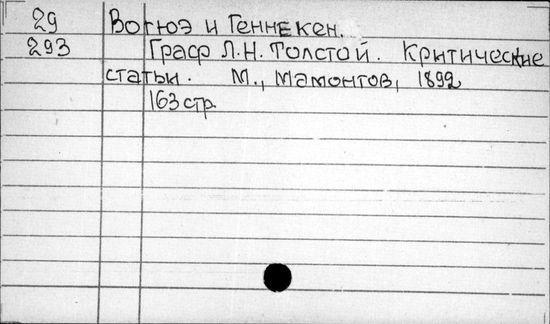 29 Вогюэ и Геннекен.
293 Граф Л.Н. Толстой. Критические
статьи. М., Мамонтов, 1892
163 стр.